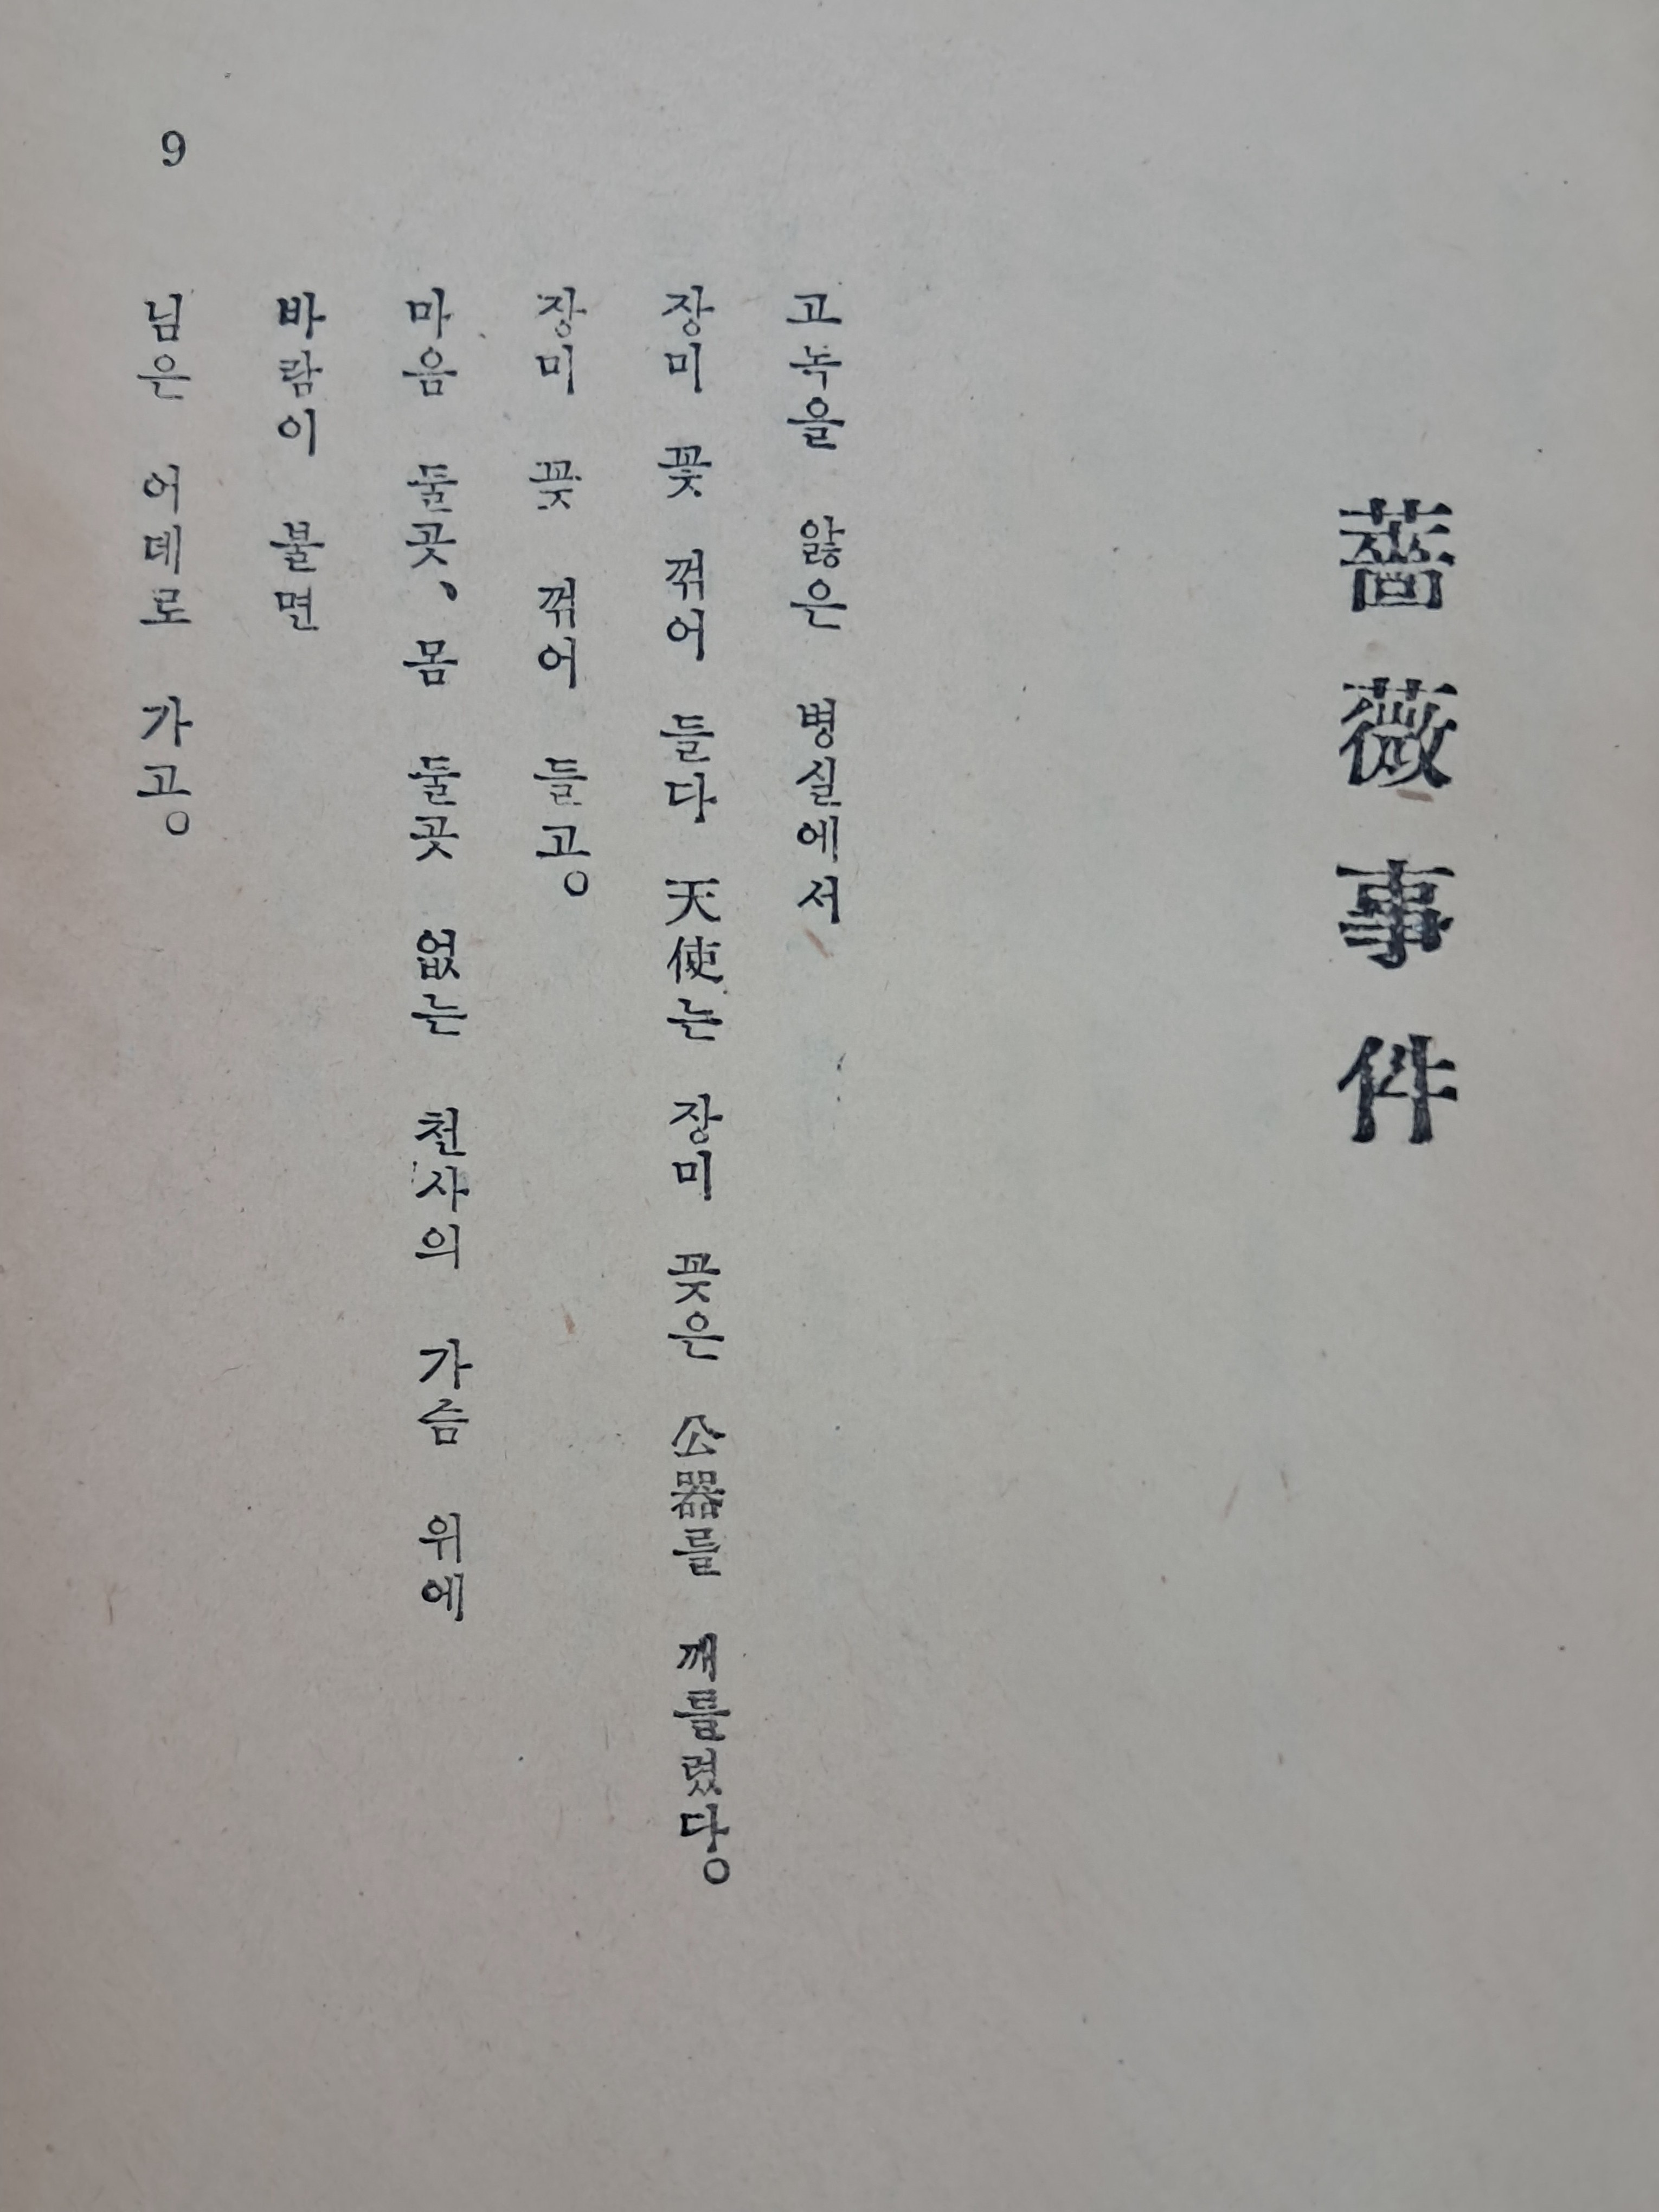 薔薇事件
고녹을 앓은 병실에서
장미 꽃 꺾어 들다 天使는 장미 꽃은 公器를 깨틀렸다。
장미 꽃 꺾어 들고。
마음 둘곳、몸 둘곳 없는 천사의 가슴 위에
바람이 불면
님은 어데로 가고。
9